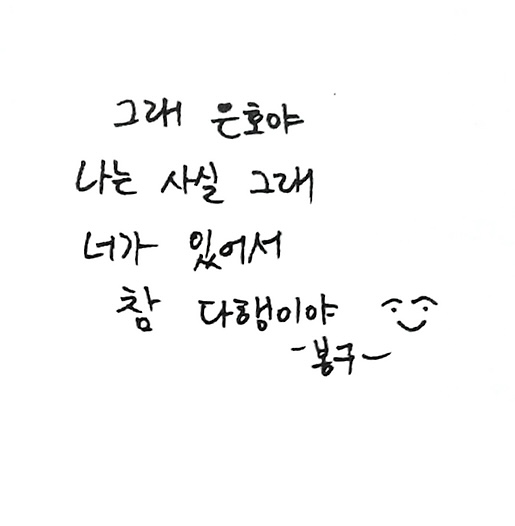 그래 은호야
나는 사실 그래
너가 있어서
참 다행이야
-봉구-